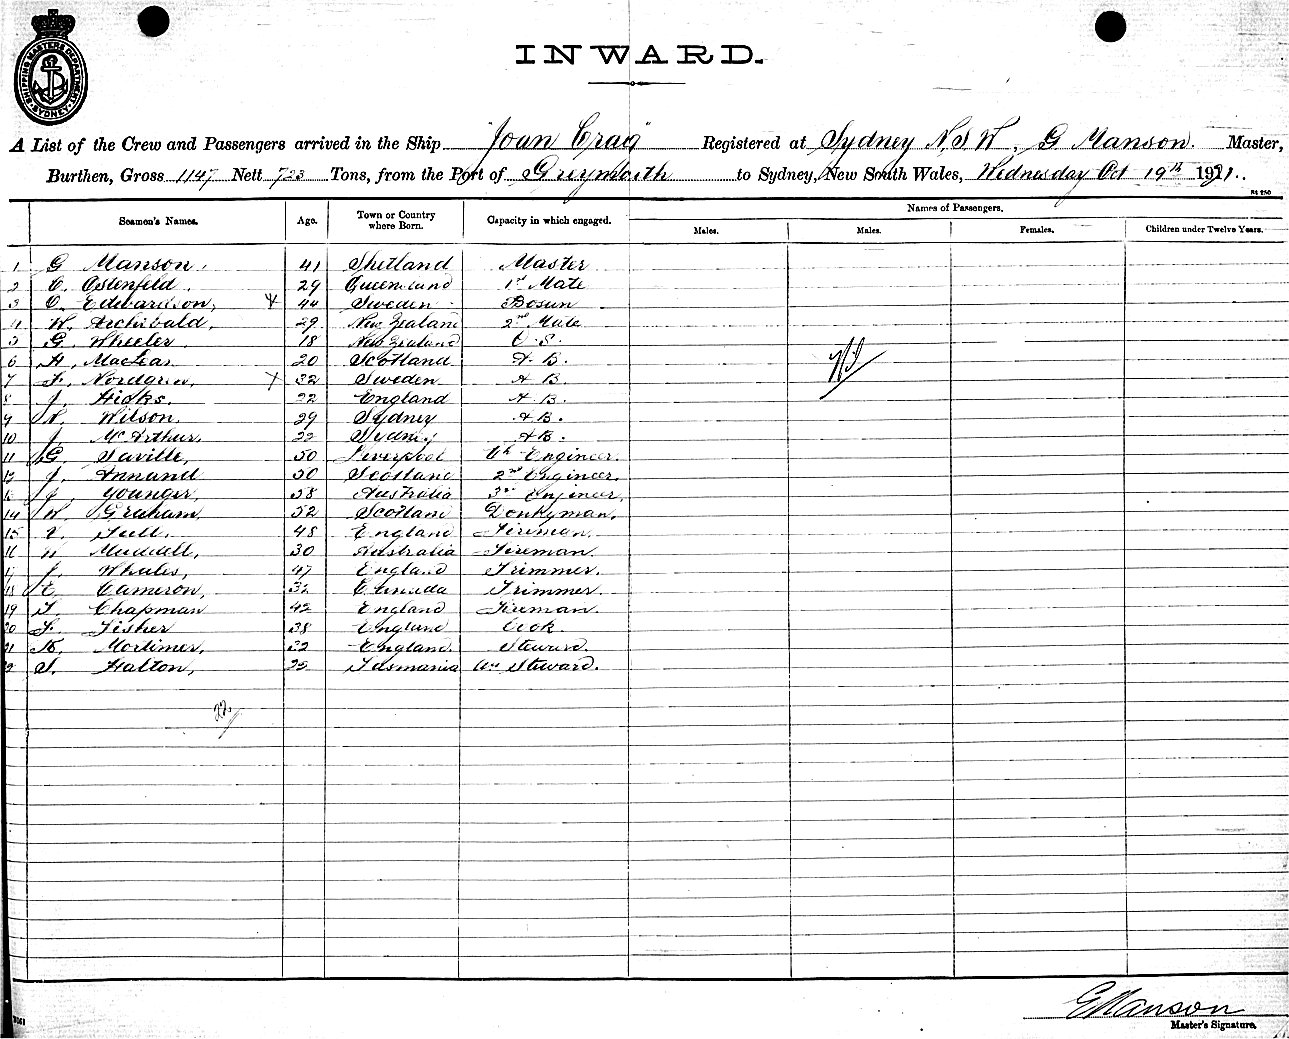 SHIPPING MASTERS DEPARTMENT SYDNEY
INWARD.
A List of the Crew and Passengers arrived in the Ship "Joan Craig" Registered at Sydney N.S.W, G Manson. Master,
Burthen, Gross 1147 Nett 723 Tons, from the Port of Greymouth to Sydney, New South Wales, Wednesday Oct 19th 1921.
Seamen's Names. Age. Town or Country where Born. Capacity in which engaged. Names of Passengers.
Males. Males. Females. Children under Twelve Years.
1 G Manson. 41 Shetland Master
2 C. Ostenfeld. 29 Queensland 1st Mate
3 O. Edwardson, 44 Sweden Bosun
4 W. Archibald. 29 New Zealand 2nd Mate
5 G. Wheeler. 18 New Zealand O.S.
6 H. MacLeas 20 Scotland A.B.
7 F. Nordgren, 32 Sweden A.B.
8 J. Hicks. 22 England A.B.
9 Wilson. 29 Sydney A.B.
10 J. McArthur. 22 Sydney A.B.
11 G. Saville, 50 Liverpool Engineer.
12 J. Annand 50 Scotland 2nd Engineer.
13 J. Younger, 58 Australia 3rd Engineer,
14 W. Graham. 52 Scotland Donkyman.
15 48 England Fireman.
16 Muddell, 30 Australia Fireman.
17 J. Whales, 47 England Trimmer.
18 Cameron, 32 Canada Trimmer.
19 T. Chapman 42 England Fireman.
20 F. Fisher 38 England Cook.
21 Mortimer, 32 England. Steward.
22 Halton, 22 Tasmania Steward.
22
G Manson
Master's Signature.